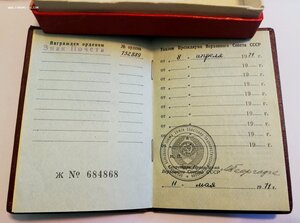 Награжден орденом
№ ордена
Знак Почёта
732889
Ж № 684868
Указом Президиума Верховного Совета СССР
от 8 апреля 1971.
от 19
от 19
от 19
от 19
от 19
от 19
от 19
Секретарь Президиума
Верховного Совета СССР
11 мая 1971.